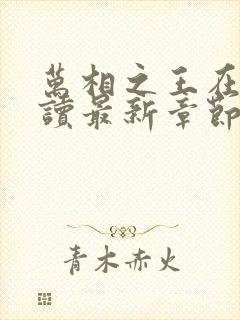 萬相之王在
讀最新章節
青木赤火